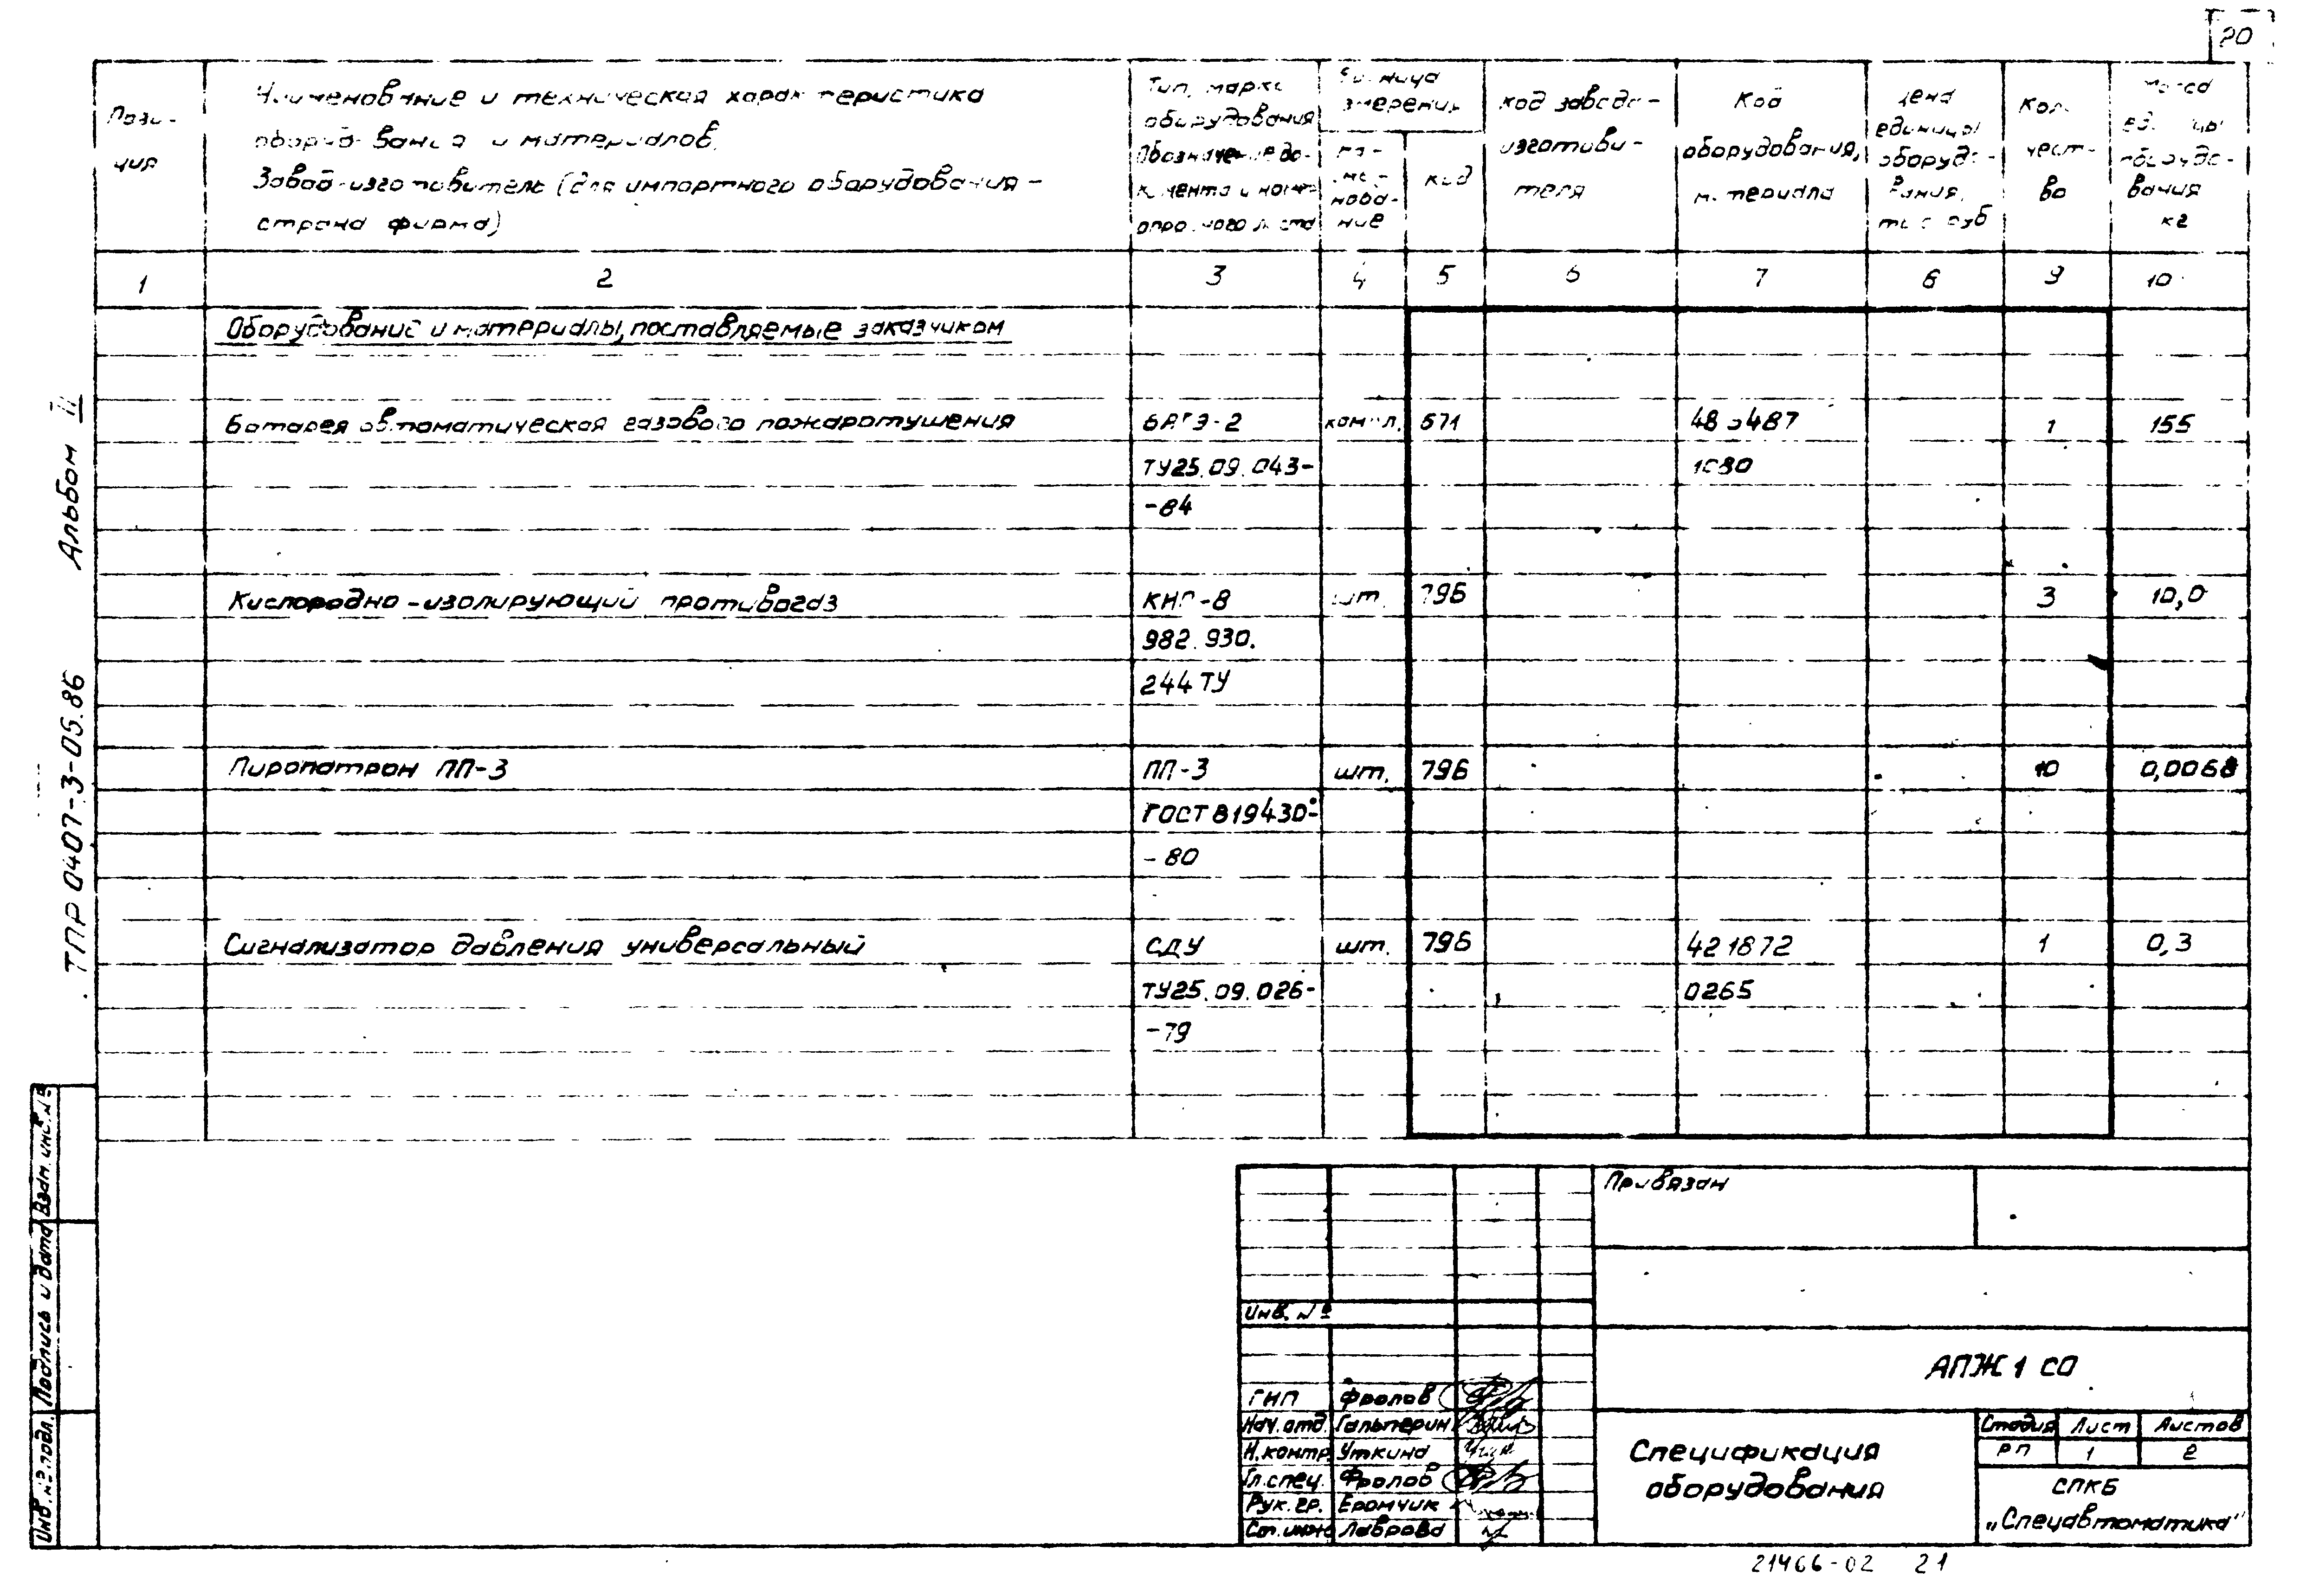 20
Пози-
ция
Наименование и техническая характеристика
оборудования и материалов.
Завод-изготовитель (для импортного оборудования -
страна фирма)
Тип, марка
оборудования
Обозначение до-
кумента и номер
опросного листа
Единица
измерения
на-
име-
нова-
ние
код
код завода-
изготови-
теля
Код
оборудования,
материала
Цена
единицы
оборудо-
вания,
тыс руб
Коли-
чест-
во
Масса
единицы
оборудо-
вания
кг
1 2 3 4 5 6 7 8 9 10
Оборудование и материалы, поставляемые заказчиком
Батарея автоматическая газового пожаротушения БАГЭ-2 компл. 671 1 155
ТУ25.09.043- 1080
-84
Кислородно-изолирующий противогаз -8 шт. 796 3 10,0
982.930.
244 ТУ
Пиропатрон ПП-3 ПП-3 шт. 796 10 0,0068
ГОСТ В19430-
-80
Сигнализатор давления универсальный СДУ шт. 796 421872 1 0,3
ТУ25.09.026- 0265
-79
Альбом
ТПР 0407-3-05.86
Взам. инв. №
Подпись и дата
Инв. № подл.
Привязан
Инв. №
АПЖ 1 СО
ГИП Фролов
Нач. отд. Гальперин
Н. контр. Уткина
Гл. спец. Фролов
Рук. гр. Еромчик
Ст. инж. Лаврова
Спецификация
оборудования
Стадия Лист Листов
РП 1 2
СПКБ
„Спецавтоматика"
21466-02 21